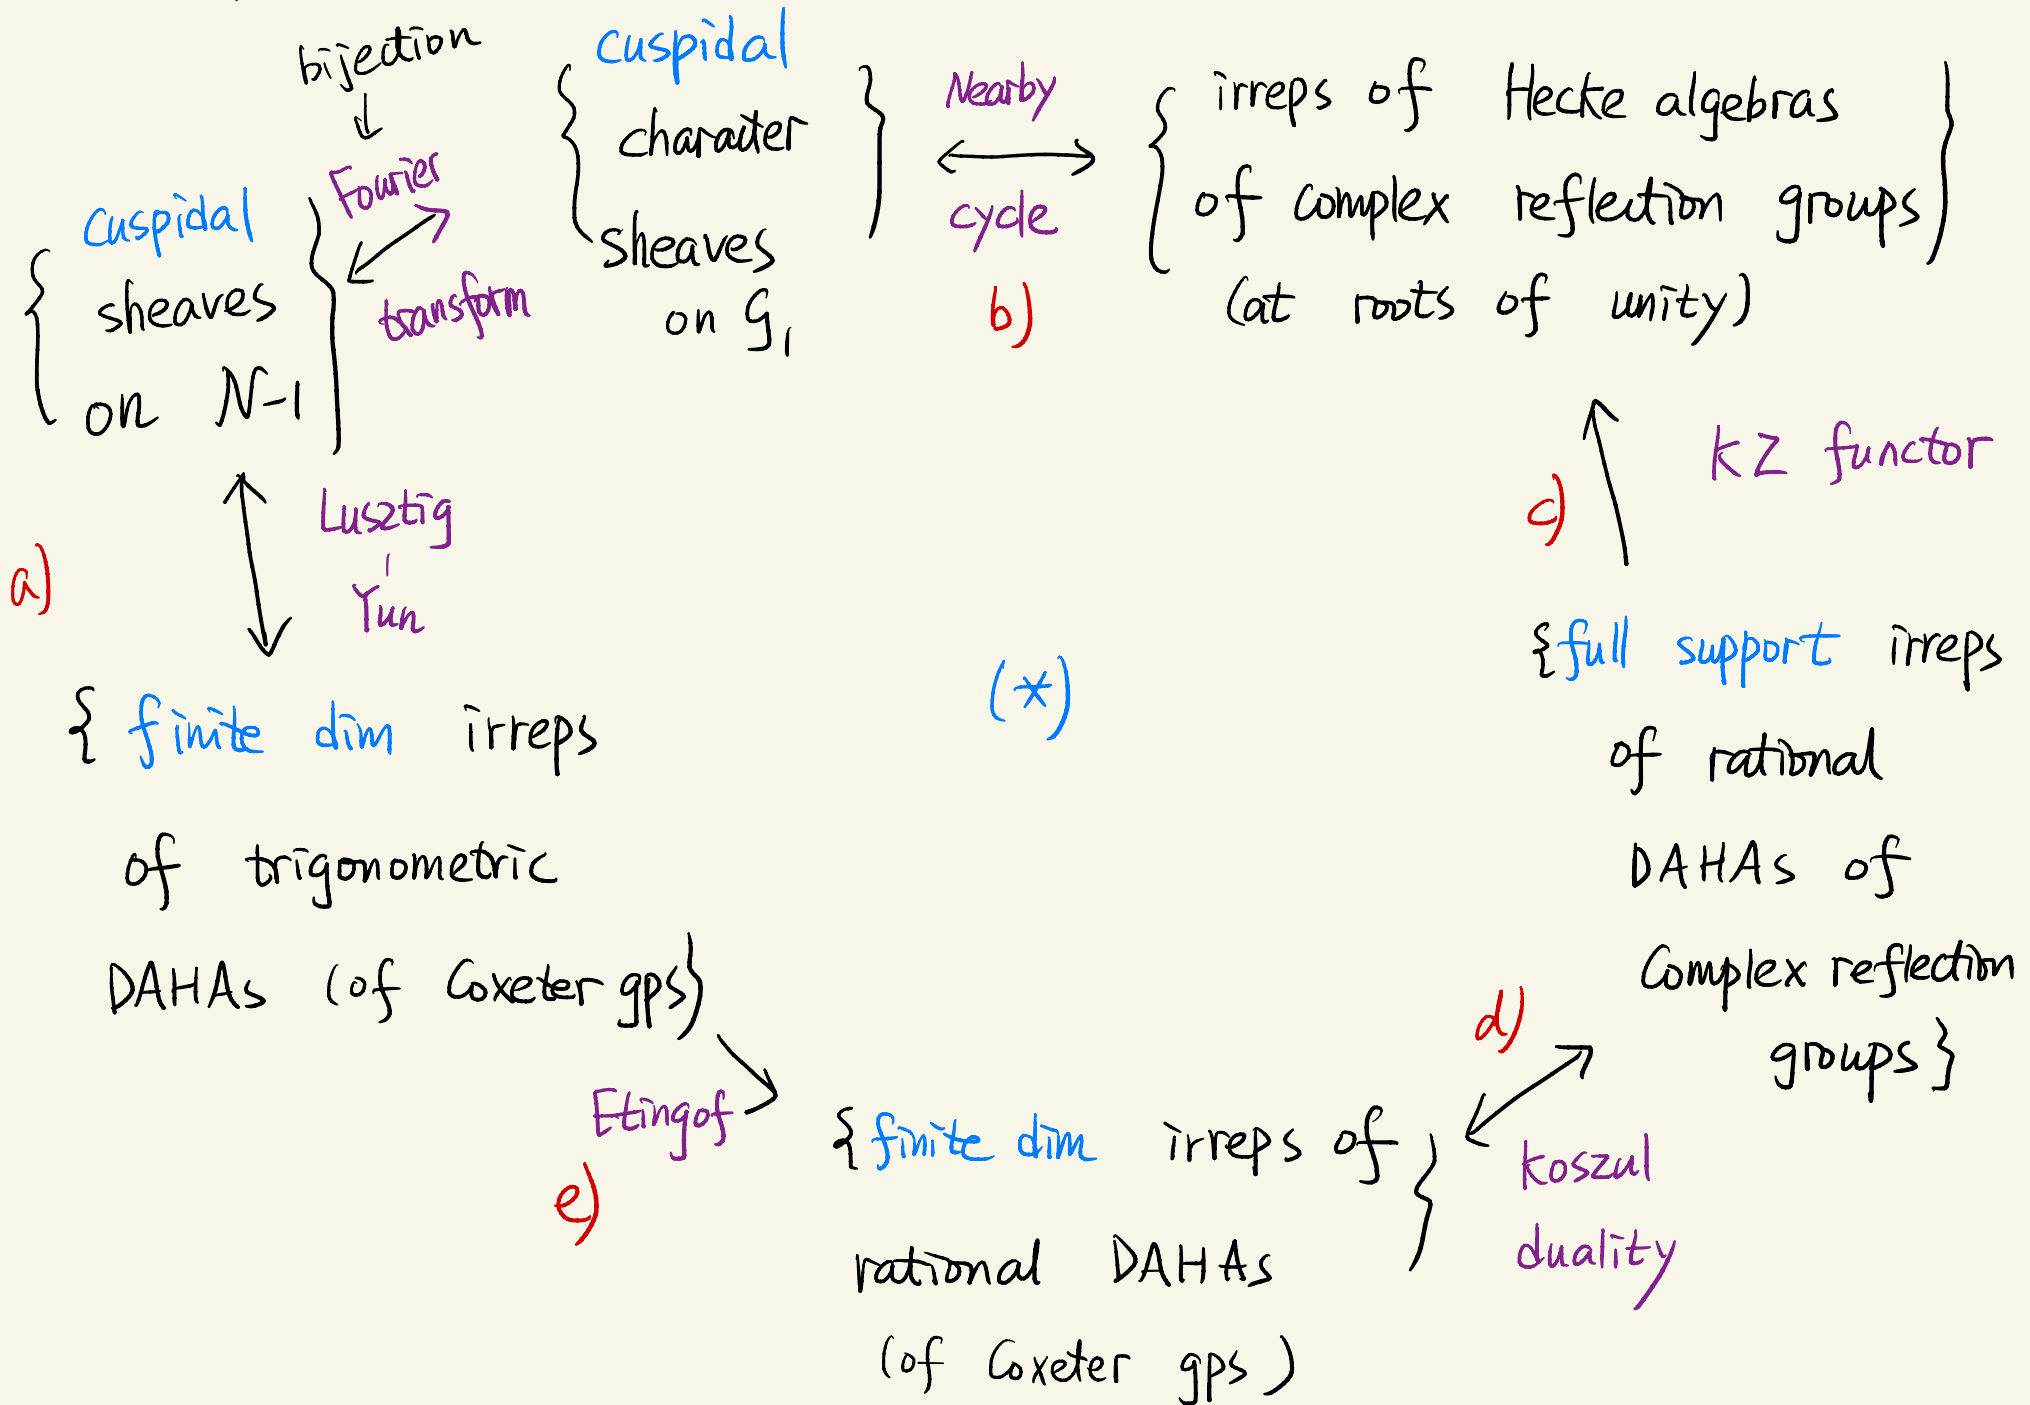 bijection
↓
Fourier
transform
{ cuspidal
sheaves
on N-1 }
{ cuspidal
character
sheaves
on g₁ }
Nearby
cycle
b)
{ irreps of Hecke algebras
of complex reflection groups }
(at roots of unity)
a)
Lusztig
-
Yun
c)
KZ functor
{ finite dim irreps
of trigonometric
DAHAs (of Coxeter gps }
(*)
{full support irreps
of rational
DAHAs of
Complex reflection
groups}
Etingof
e)
{finite dim irreps of }
rational DAHAs
(of Coxeter gps )
d)
Koszul
duality